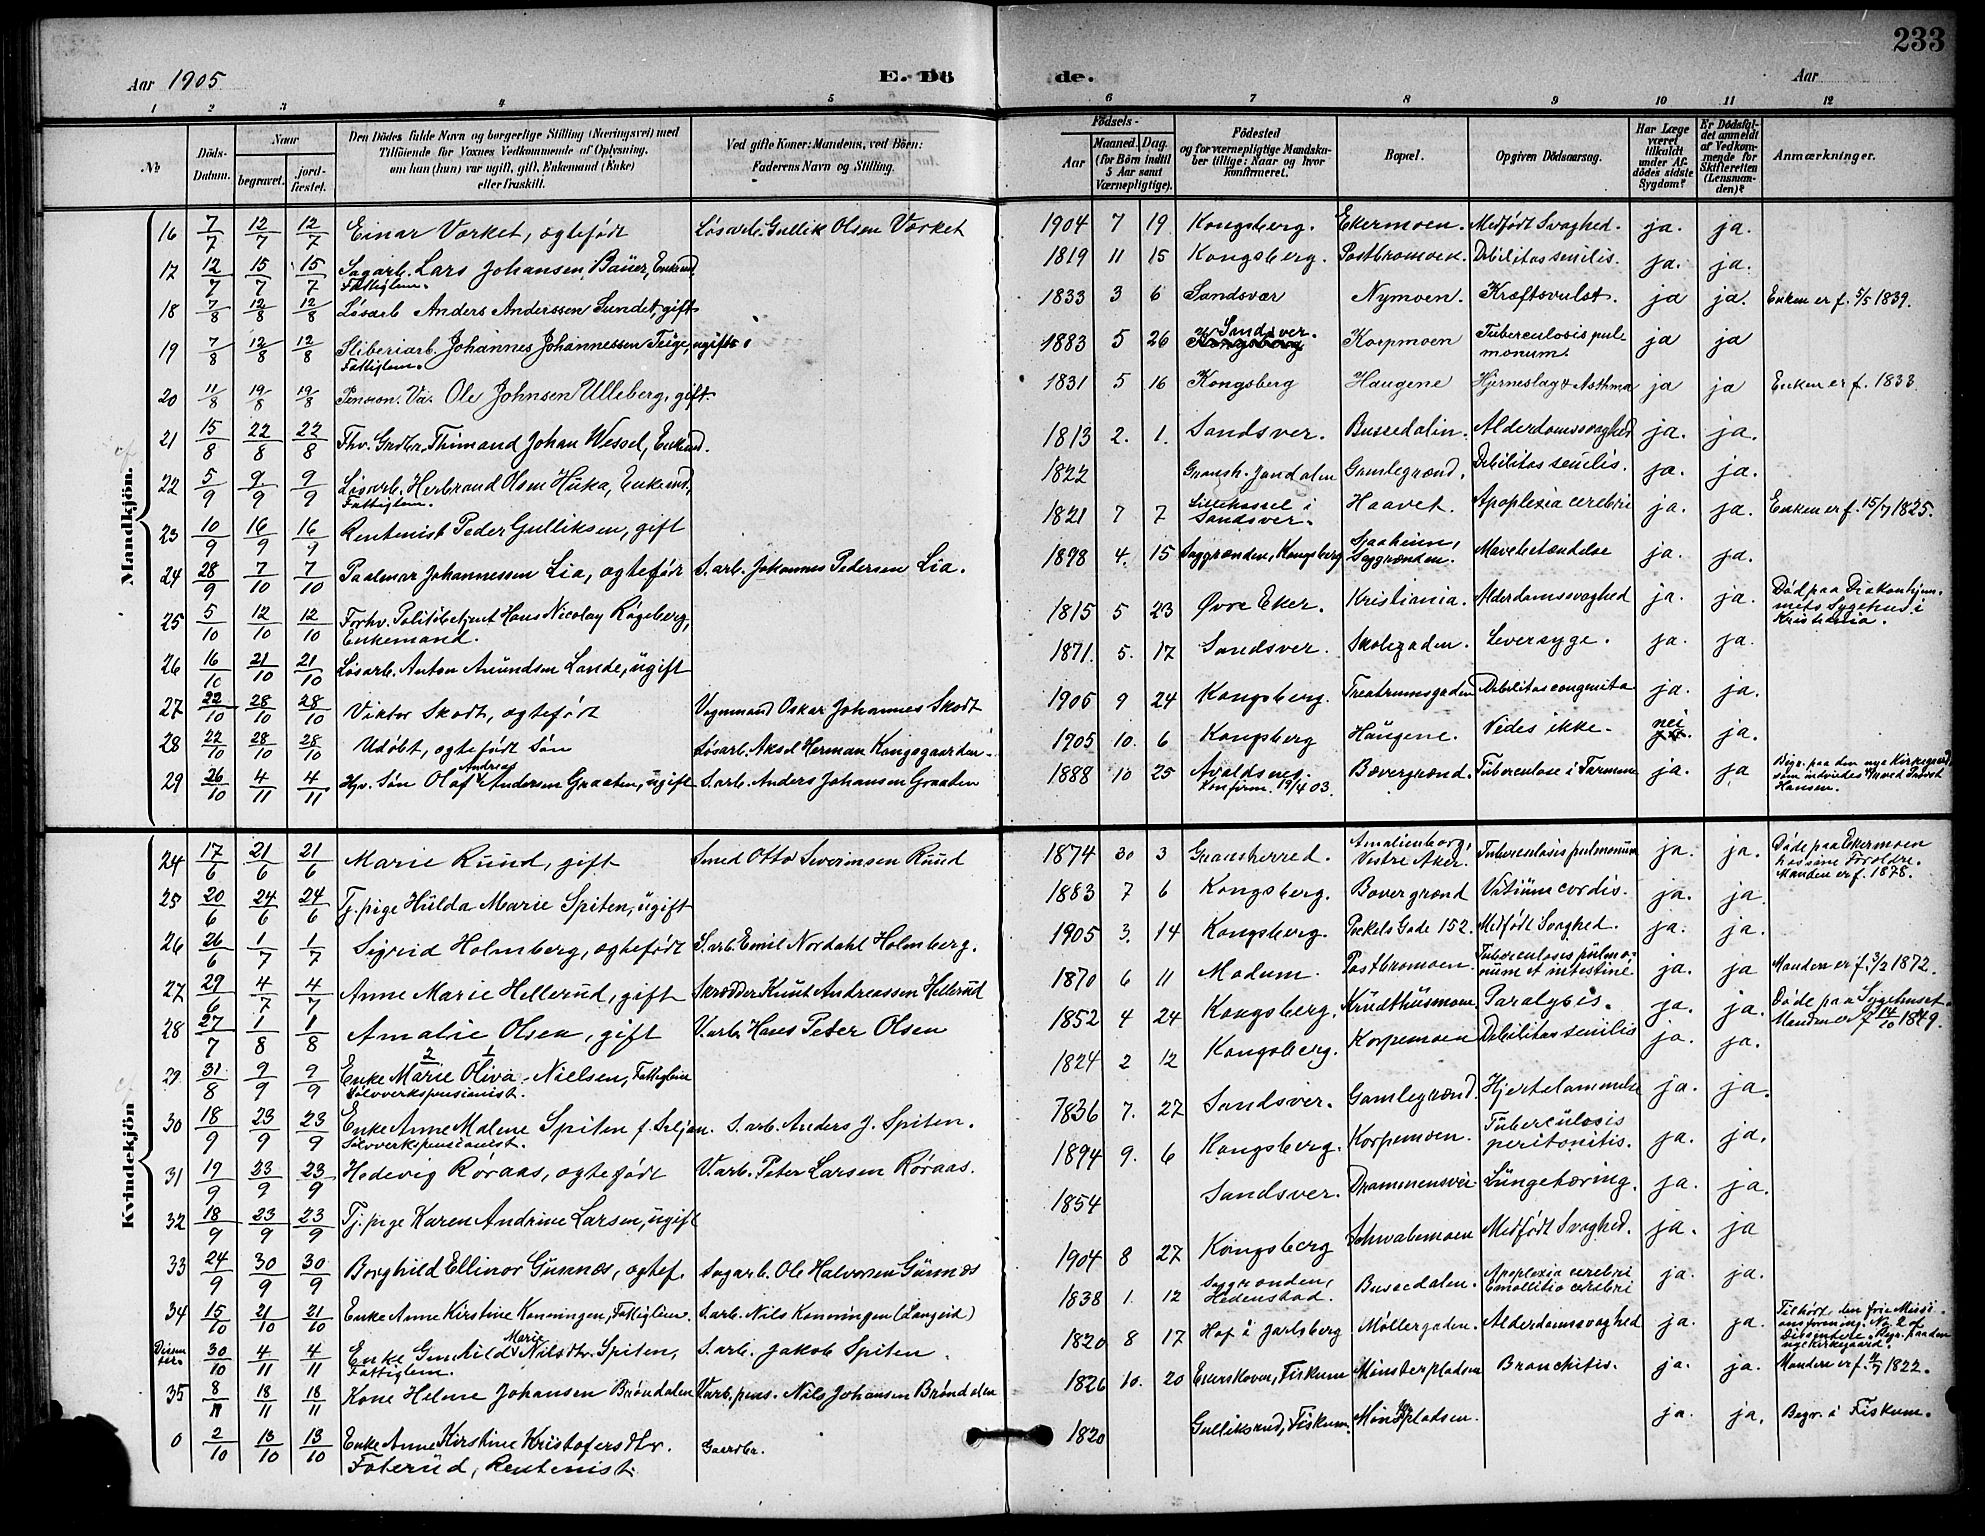 233
Aar 1905
E. Dö
de.
Aar
1 2 3 4 5 6 7 8 9 10 11 12
No
Döds-Datum.
Naar
begravet.
jord-fæstet.
Den Dödes fulde Navn og borgerlige Stilling (Næringsvei) med
Tilföiende for Voxnes Vedkommende af Oplysning,
om han (hun) var ugift, gift, Enkemand (Enke)
eller fraskilt.
Ved gifte Koner: Mandens, ved Börn:
Faderens Navn og Stilling.
Födsels-
Aar
Maaned. Dag.
(for Börn indtil
5 Aar samt
Værnepligtige).
Födested
og for værnepligtige Mandska-
ber tillige: Naar og hvor
konfirmeret.
Bopæl.
Opgiven Dödsaarsag.
Har Læge
været
tilkaldt
under Af-
dödes sidste
Sygdom?
Er Dödsfal-
det anmeldt
af Vedkom-
mende for
Skifteretten
(Lensman-
den)?
Anmærkninger.
Mandkjön.
16 7/7 12/7 12/7 Einar Værket, ægtefødt Løsarb. Gullik Olsen Værket 1904 7 19 Kongsberg. Ekermoen. Medfødt Svaghed. ja. ja.
17 12/7 15/7 15/7 Sagarb. Lars Johansen Bauer, Enkemd. Fattiglem. 1819 11 15 Kongsberg. Postbromoen. Debilitas senilis. ja. ja.
18 7/8 12/8 12/8 Løsarb Anders Anderssen Sundet, gift 1833 3 6 Sandsvær Nymoen. Kræftsvulst. ja ja. Enken er f. 5/5 1839.
19 7/8 12/8 12/8 Sliberiarb. Johannes Johannessen Teige, ugift. Fattiglem. 1883 5 26 Sandsver. Korpmoen Tuberculosis pulmonum. ja ja
20 11/8 19/8 19/8 Pension. Va. Ole Johnsen Ulleberg, gift. 1831 5 16 Kongsberg Haugene Hjerneslag & Asthma ja ja Enken er f. 1833
21 15/8 22/8 22/8 Fhv. Grdbr. Thimand Johan Wessel, Enkemd. 1813 2. 1. Sandsver. Bussedalen. Alderdomssvaghed ja. ja.
22 5/9 9/9 9/9 Løsarb. Herbrand Olsen Huka, Enkemd, Fattiglem. 1822 Gransh. Jondalen Gamlegrænd. Debilitas senilis. ja. ja.
23 10/9 16/9 16/9 Rentenist Peder Gulliksen, gift 1821 7 7 Lillehassel i Sandsver. Haavet. Apoplexia cerebri ja. ja. Enken er f. 15/7 1825.
24 28/9 7/10 7/10 Paalmar Johannessen Lia, ægtefør S. arb. Johannes Pedersen Lia. 1898 4. 15 Saggrænden, Kongsberg Sjaaheim, Saggrænden. Mavebetændelse ja. ja.
25 5/10 12/10 12/10 Forhv. Politibetjent Hans Nicolay Røgeberg, Enkemand. 1815 5 23 Øvre Eker. Kristiania. Alderdomssvaghed ja. ja. Død paa Diakonhjemmets Sygehus i Kristiania.
26 16/10 21/10 21/10 Løsarb. Anton Amundsen Lande, ugift 1871. 5. 17 Sandsver. Skolegaden. Leversyge. ja. ja.
27 22/10 28/10 28/10 Viktor Skodt, ægtefødt Vognmand Oskar Johannes Skodt 1905 9 24 Kongsberg. Teatrumsgaden Debilitas congenita ja. ja.
28 22/10 28/10 28/10 Udøbt, ægtefødt Søn Løsarb. Aksel Herman Kongsgaarden. 1905 10. 6 Kongsberg Haugene. Vides ikke. nei ja.
29 26/10 4/11 4/11 Hjv. Søn Olaf Andreas Andersen Graaten, ugift S. arb. Anders Johansen Graaten 1888 10 25 Avaldsnes. Konfirm. 19/4 03. Bævergrænd. Tuberculose i Tarmene ja. ja. Begr. paa den nye Kirkegaard, som indviedes ved Provst Hansen.
Kvindekjön
24 17/6 21/6 21/6 Marie Ruud, gift Smed Otto Severinsen Ruud 1874 30 3 Gransherred. Amalienborg, Vestre Aker. Tuberculosis pulmonum ja. ja. Døde paa Ekermoen hos sine Forældre. Manden er f. 1878.
25 20/6 24/6 24/6 Tj. pige Hulda Marie Spiten, ugift 1883 7 6 Kongsberg. Bævergrænd Vitium cordis. ja. ja.
26 26/6 1/7 1/7 Sigrid Holmberg, ægtefødt S. arb. Emil Nordahl Holmberg. 1905 3. 14 Kongsberg. Peckels Gade 152. Medfødt Svaghed. ja. ja.
27 29/6 4/7 4/7 Anne Marie Hellerud, gift Skrædder Knut Andreassen Hellerud 1870 6 11 Modum. Postbromoen. Tuberculosis pulmonum et intestine ja. ja Manden er f. 3/2 1872.
28 27/7 1/8 1/8 Amalie Olsen, gift V. arb. Hans Peter Olsen 1852 4 24 Kongsberg. Krudthusmoen. Paralysis. ja. ja. Døde paa Sygehuset. Manden er f 14/10 1849.
29 31/8 9/9 9/9 Enke Marie Oliva Nielsen, Fattiglem Sølvverkspensionist. 1824 2 12 Kongsberg. Korpemoen Debilitas senilis ja. ja.
30 18/9 23/9 23/9 Enke Anne Malene Spiten f. Seljan. Sølvverkspensionist. S. arb. Anders J. Spiten. 1836 7. 27 Sandsver. Gamlegrænd. Hjertelammelse ja. ja.
31 19/9 23/9 23/9 Hedevig Røraas, ægtefødt V. arb. Peter Larsen Røraas. 1894 9. 6 Kongsberg. Korpemoen. Tuberculosis peritonitis. ja. ja.
32 18/9 23/9 23/9 Tj. pige Karen Andrine Larsen, ugift 1854 Sandsver. Drammensvei Lungetæring. ja. ja.
33 24/9 30/9 30/9 Borghild Ellinor Gunnæs, ægtef. Sagarb. Ole Halvorsen Gunnæs 1904 8 27 Kongsberg Schwabemoen Medfødt Svaghed. ja. ja
34 15/10 21/10 21/10 Enke Anne Kirstine Konningen, Fattiglem. S. arb. Nils Konningen (Langeid) 1838 1. 12 Saggrænden, Hedenstad. Bussedalen. Apoplexia cerebri Emollitio cerebri ja. ja.
Dissenter. 30/10 4/11 4/11 Enke Gunhild Marie Nilsdtr. Spiten, Fattiglem. S. arb. Jakob Spiten. 1820 8 17 Hof i Jarlsberg Møllergaden. Alderdomssvaghed ja. ja. Tilhørt den frie Missionsforening. No 2 af Dissentere. Begr. paa den nye Kirkegaard.
35 8/11 18/11 18/11 Kone Helene Johansen Brøndalen V. arb. pens. Nils Johansen Brøndalen 1826 10. 20 Fiskum Münsterpladsen Bronchitis. ja. ja. Manden er f. 1822.
0 2/10 13/10 13/10 Enke Anne Kirstine Kristofersdtr. Foterud, Rentenist. Gaardbr. 1820 Gulliksrud, Fiskum. Münsterpladsen. ja. ja. Begr. i Fiskum.